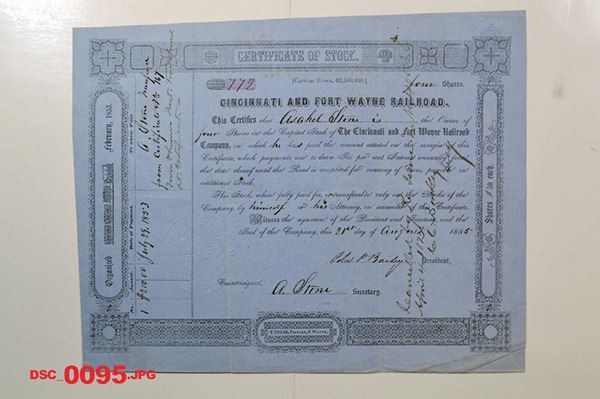 CERTIFICATE OF STOCK.
772
[CAPITAL STOCK, $2,500,000.]
four Shares.
CINCINNATI AND FORT WAYNE RAILROAD.
This Certifies that Asahel Stone is the Owner of
four Shares in the Capital Stock of The Cincinnati and Fort Wayne Railroad
Company, on which he has paid the amount attested on the margin of this
Certificate, which payments are to draw Six per cent Interest annually from
date thereof until the Road is completed for running of Cars, payable in
additional Stock.
This Stock, when fully paid for, is transferable only on the Books of the
Company, by himself or his Attorney, on surrender of this Certificate.
Witness the signature of the President and Secretary, and the
Seal of the Company, this 21st day of August 1855
President,
Countersigned,
A. Stone Secretary.
T. TIGAR, PRINTER, F. WAYNE.
Organized February, 1853.
Shares $50 each.
No. Amount. Date of Payment. To whom Paid.
1 $200.00 July 29, 1853 A Stone
from Certificate No
April
DSC_0095.JPG